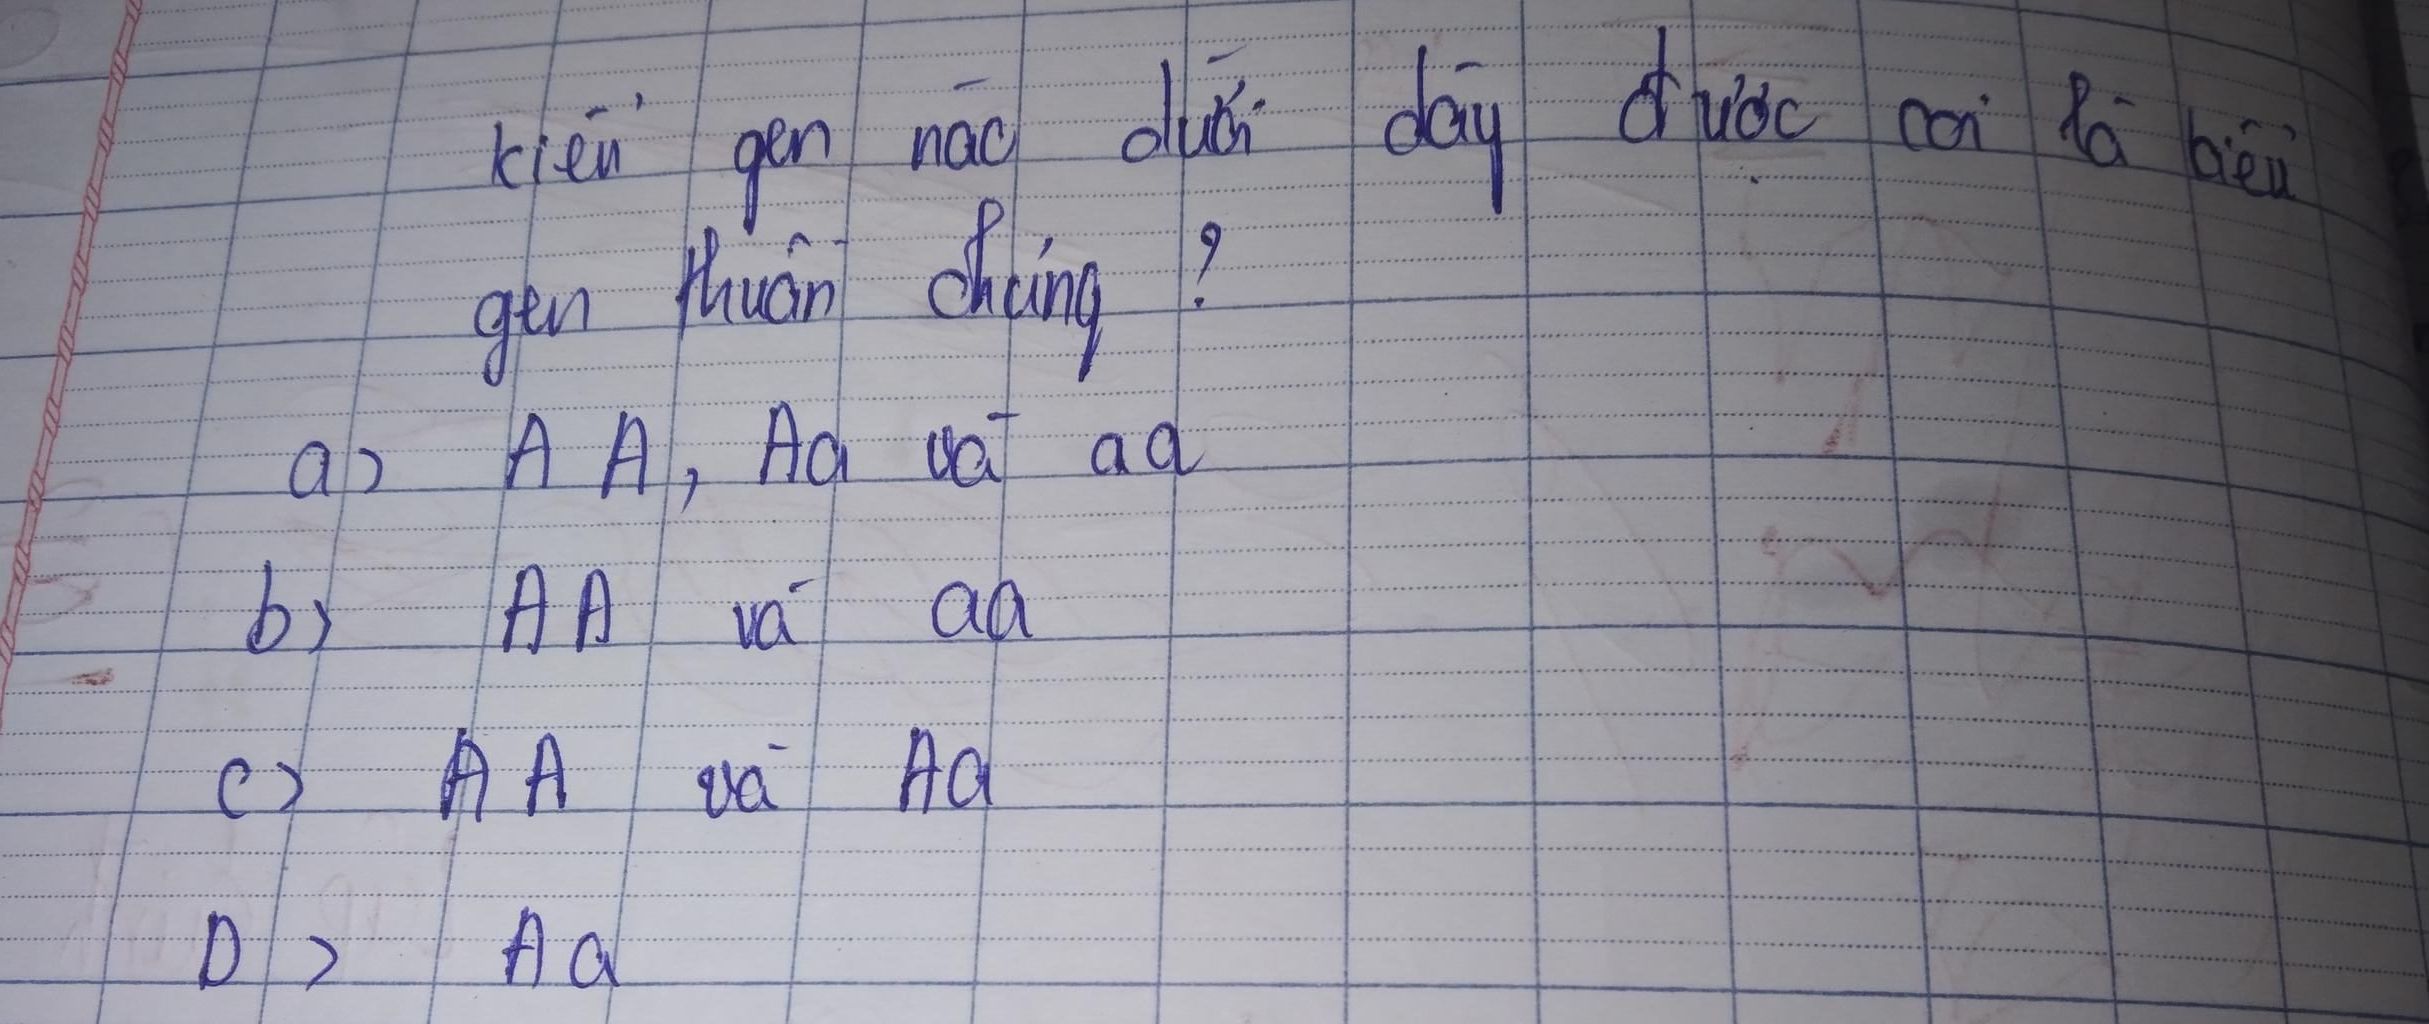 kiểu gen nào dưới dây được coi là biểu
gen thuần chủng ?
a> AA, Aa và aa
b> AA và aa
c> AA và Aa
D> Aa